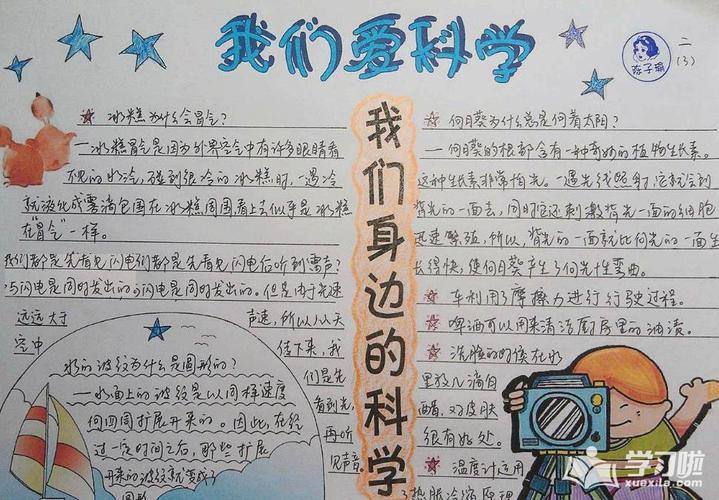 我们爱科学
陈子瑜
二
(3)
我们身边的科学
冰糕为什么会冒气?
一冰糕冒气是因为外界空气中有许多眼睛看
不见的水冷,碰到很冷的冰糕时,一遇冷
就液化成雾滴包围在冰糕周围,看上去似乎是冰糕
在"冒气"一样。
我们都是先看见闪电们都是先看见闪电后听到雷声?
与闪电是同时发出的与闪电是同时发出的。但是由于光速
远远大于 声速,所以从天
空中 传下来,我
们是先
看到光,
再听
见声音
水的波纹为什么是圆形的?
一水面上的波纹总是以同样速度
向四周扩展开来的。因此,在经
过一定时间之后,那些扩展
开来的波纹就变成了
圆形
向日葵为什么总是向着太阳?
一向日葵的根部含有一种奇妙的植物生长素。
这种生长素非常怕光。一遇光线照射,它就会到
背光的一面去,同时它还刺激背光一面的细胞
迅速繁殖,所以,背光的一面就比向光的一面生
长得快,使向日葵产生了向光性弯曲。
车利用了摩擦力进行行驶过程。
啤酒可以用来清洁厨房里的油渍。
洗脸的时候在水
里放几滴白
醋,对皮肤
很有好处。
温度计运用
了热胀冷缩原理
学习啦
xuexila.com